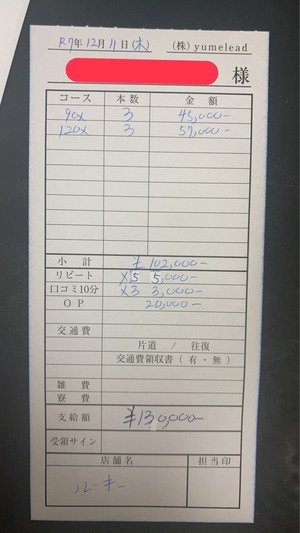 R7年 12月 11日 (木) (株) yumelead
様
コース 本数 金額
90x 3 45,000-
120x 3 57,000-
小計 ¥102,000-
リピート x5 5,000-
口コミ10分 x3 3,000-
OP 20,000-
交通費
片道 / 往復
交通費領収書 (有・無)
雑費
寮費
支給額 ¥130,000-
受領サイン
店舗名 担当印
ルーキー